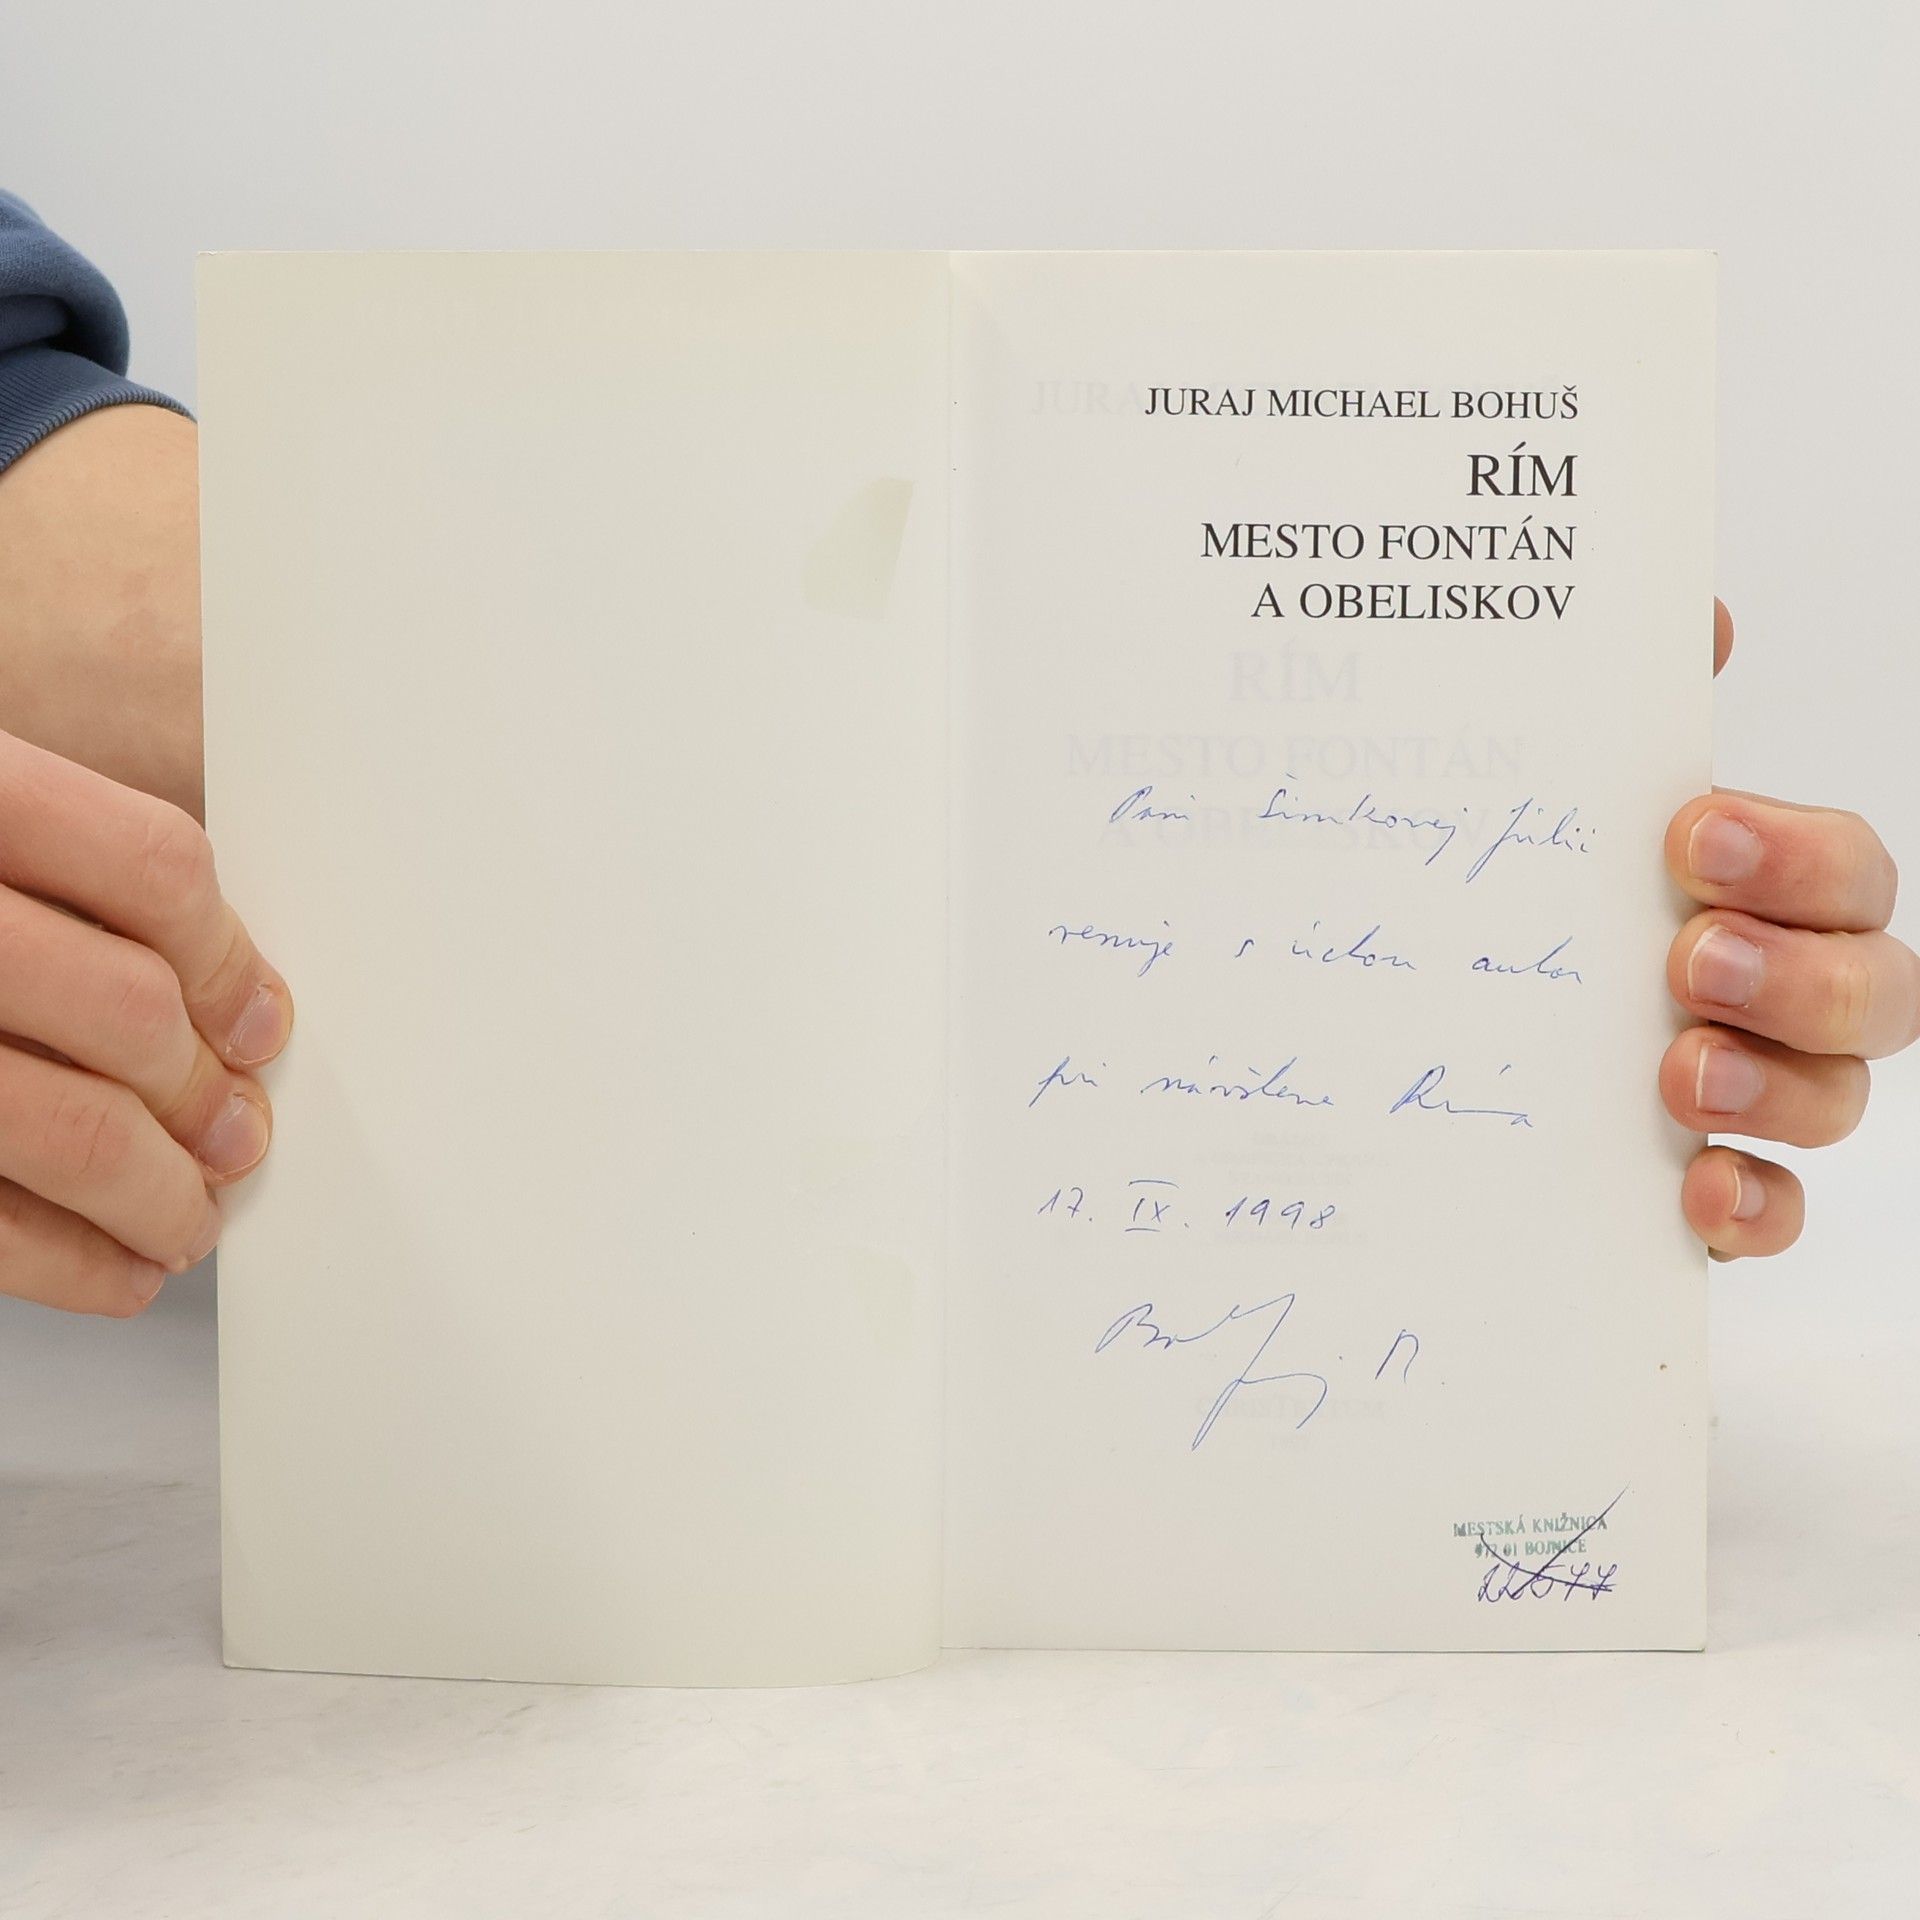 JURAJ MICHAEL BOHUŠ
RÍM
MESTO FONTÁN
A OBELISKOV
Pani Šimkovej Júlii
venuje s úctou autor
pri návšteve Ríma
17. IX. 1998
MESTSKÁ KNIŽNICA
972 01 BOJNICE
22577